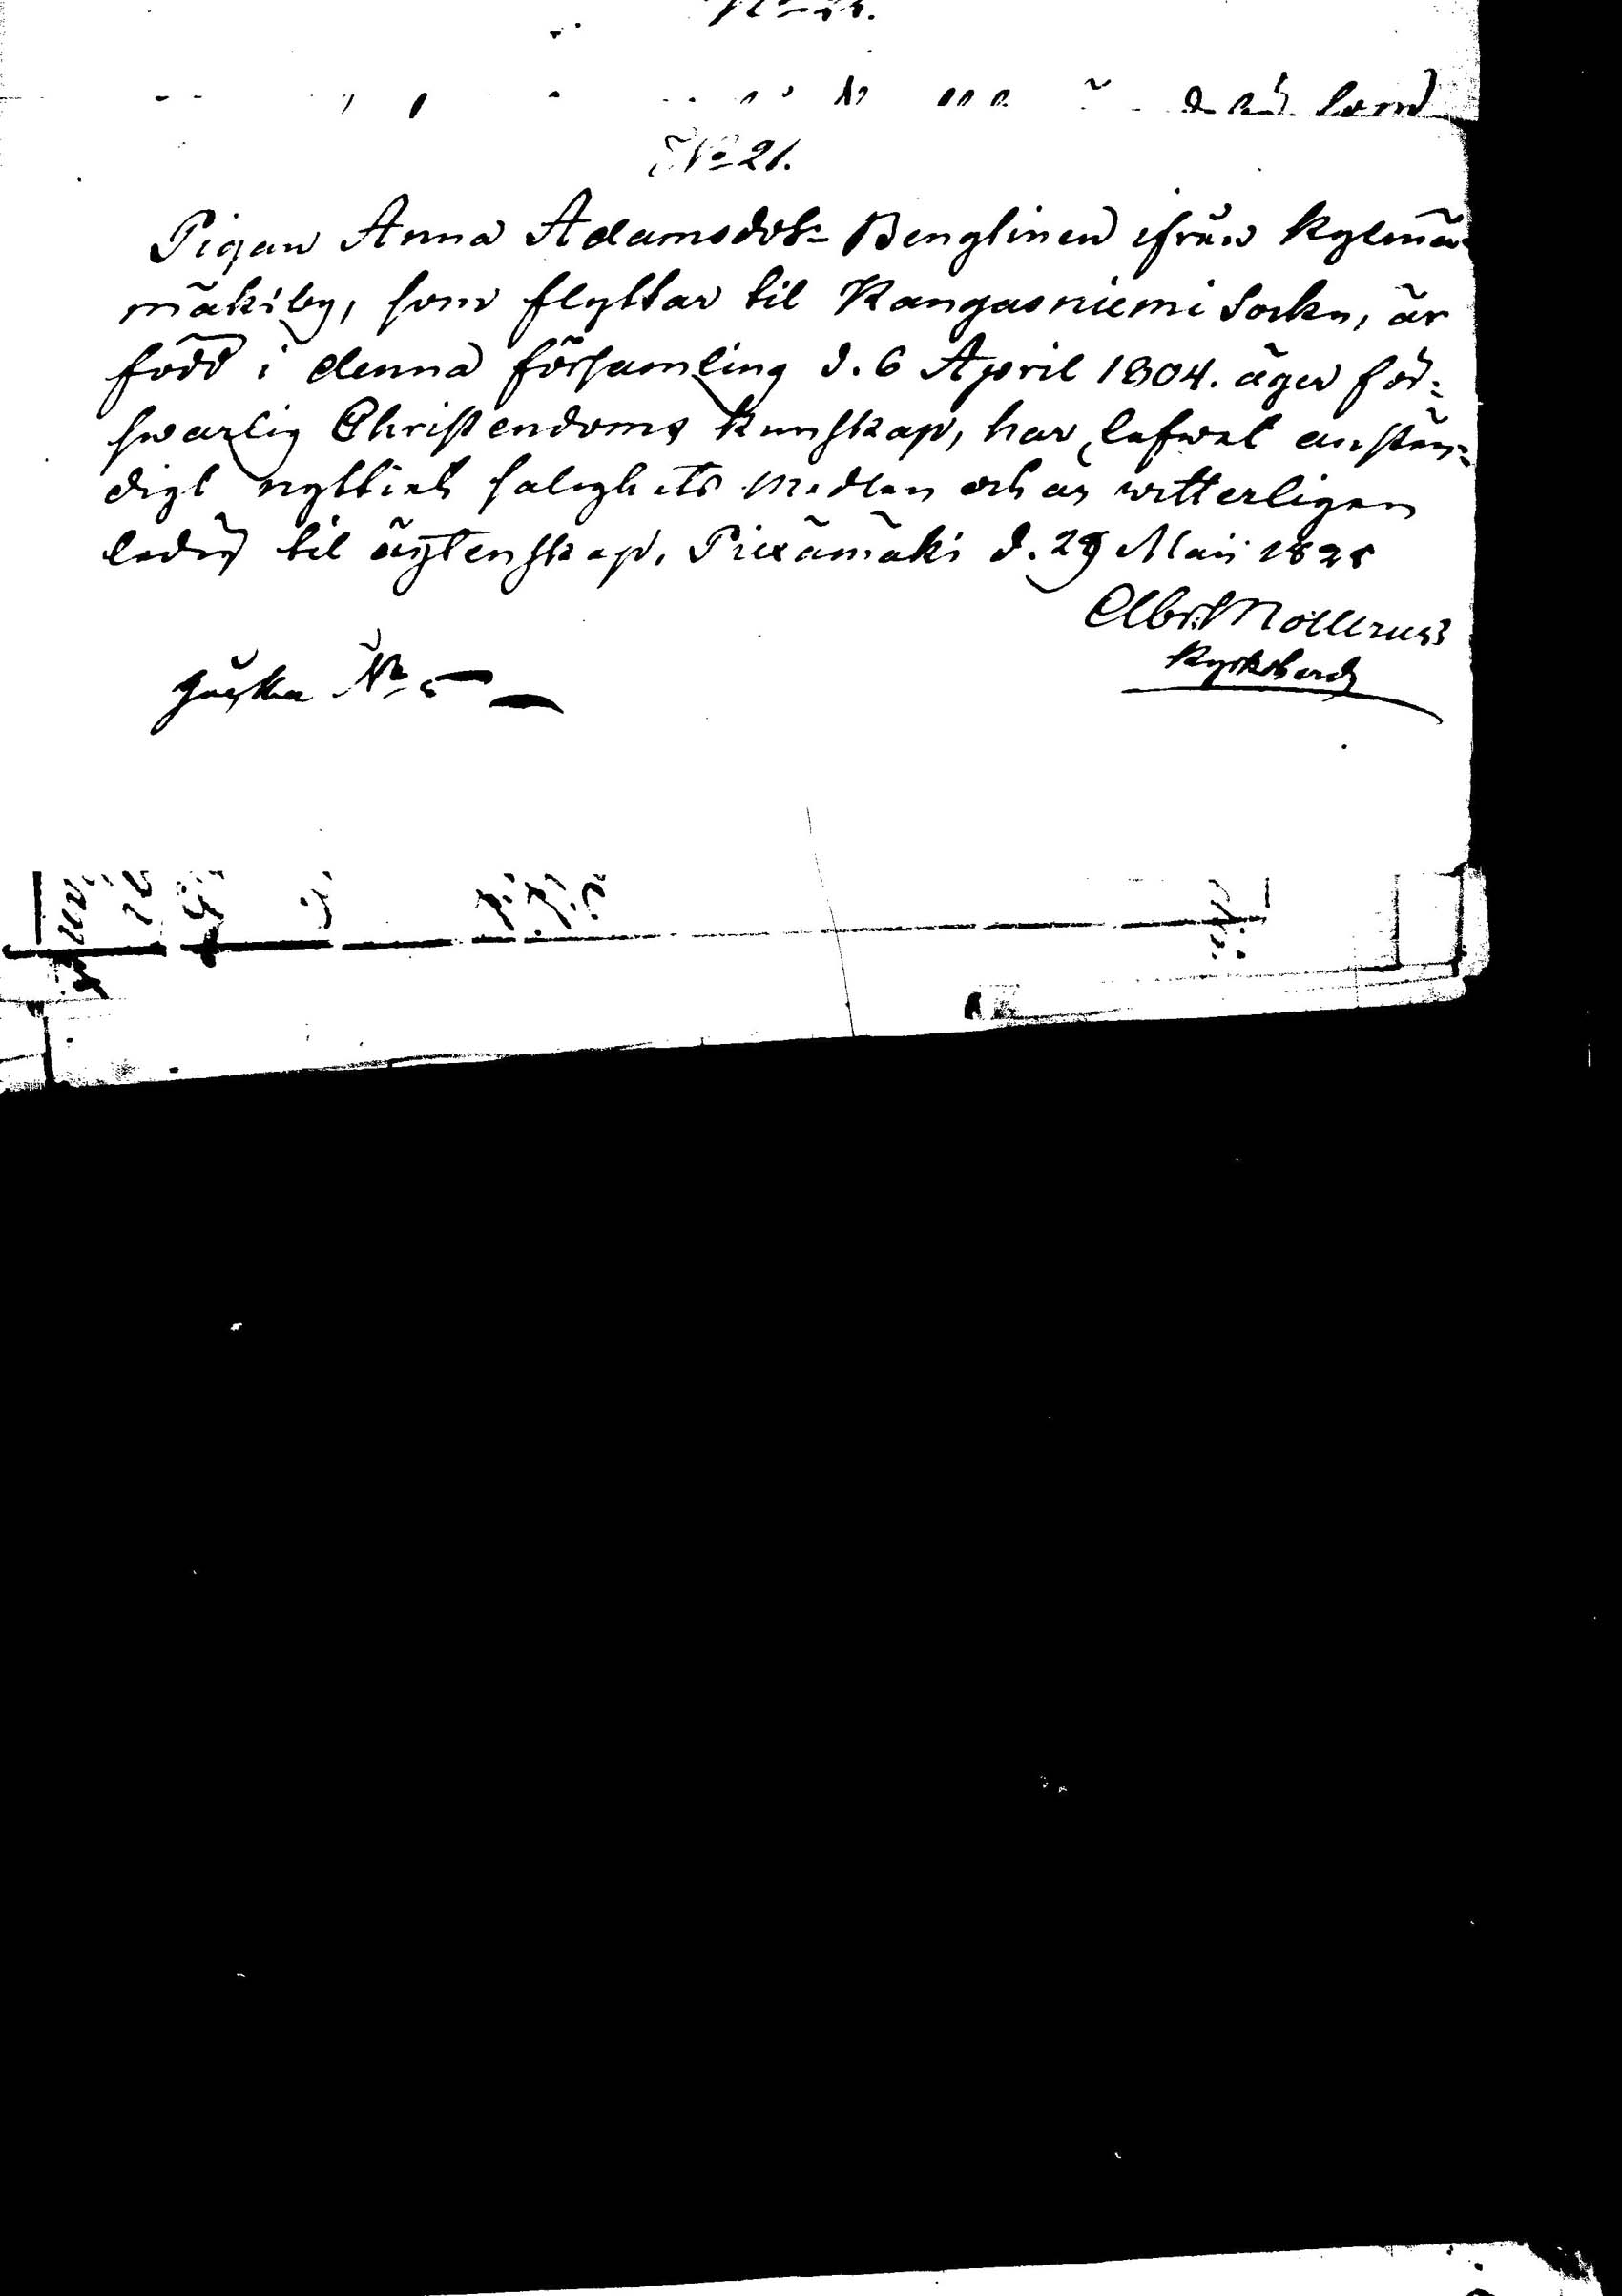 No 21.
Pigan Anna Adamsdotr Benglinen ifrån Kylmä-
mäkiby, som flyttar til Kangasniemi Sockn, är
född i denna församling d. 6 April 1804. äger för-
swarlig Christendoms kunskap, har lefwat anstän-
digt nyttiat salighets medlen och är witterligen
ledig til ägtenskap. Piexämäki d. 29 Maii 1828
Kyrkoherde
No